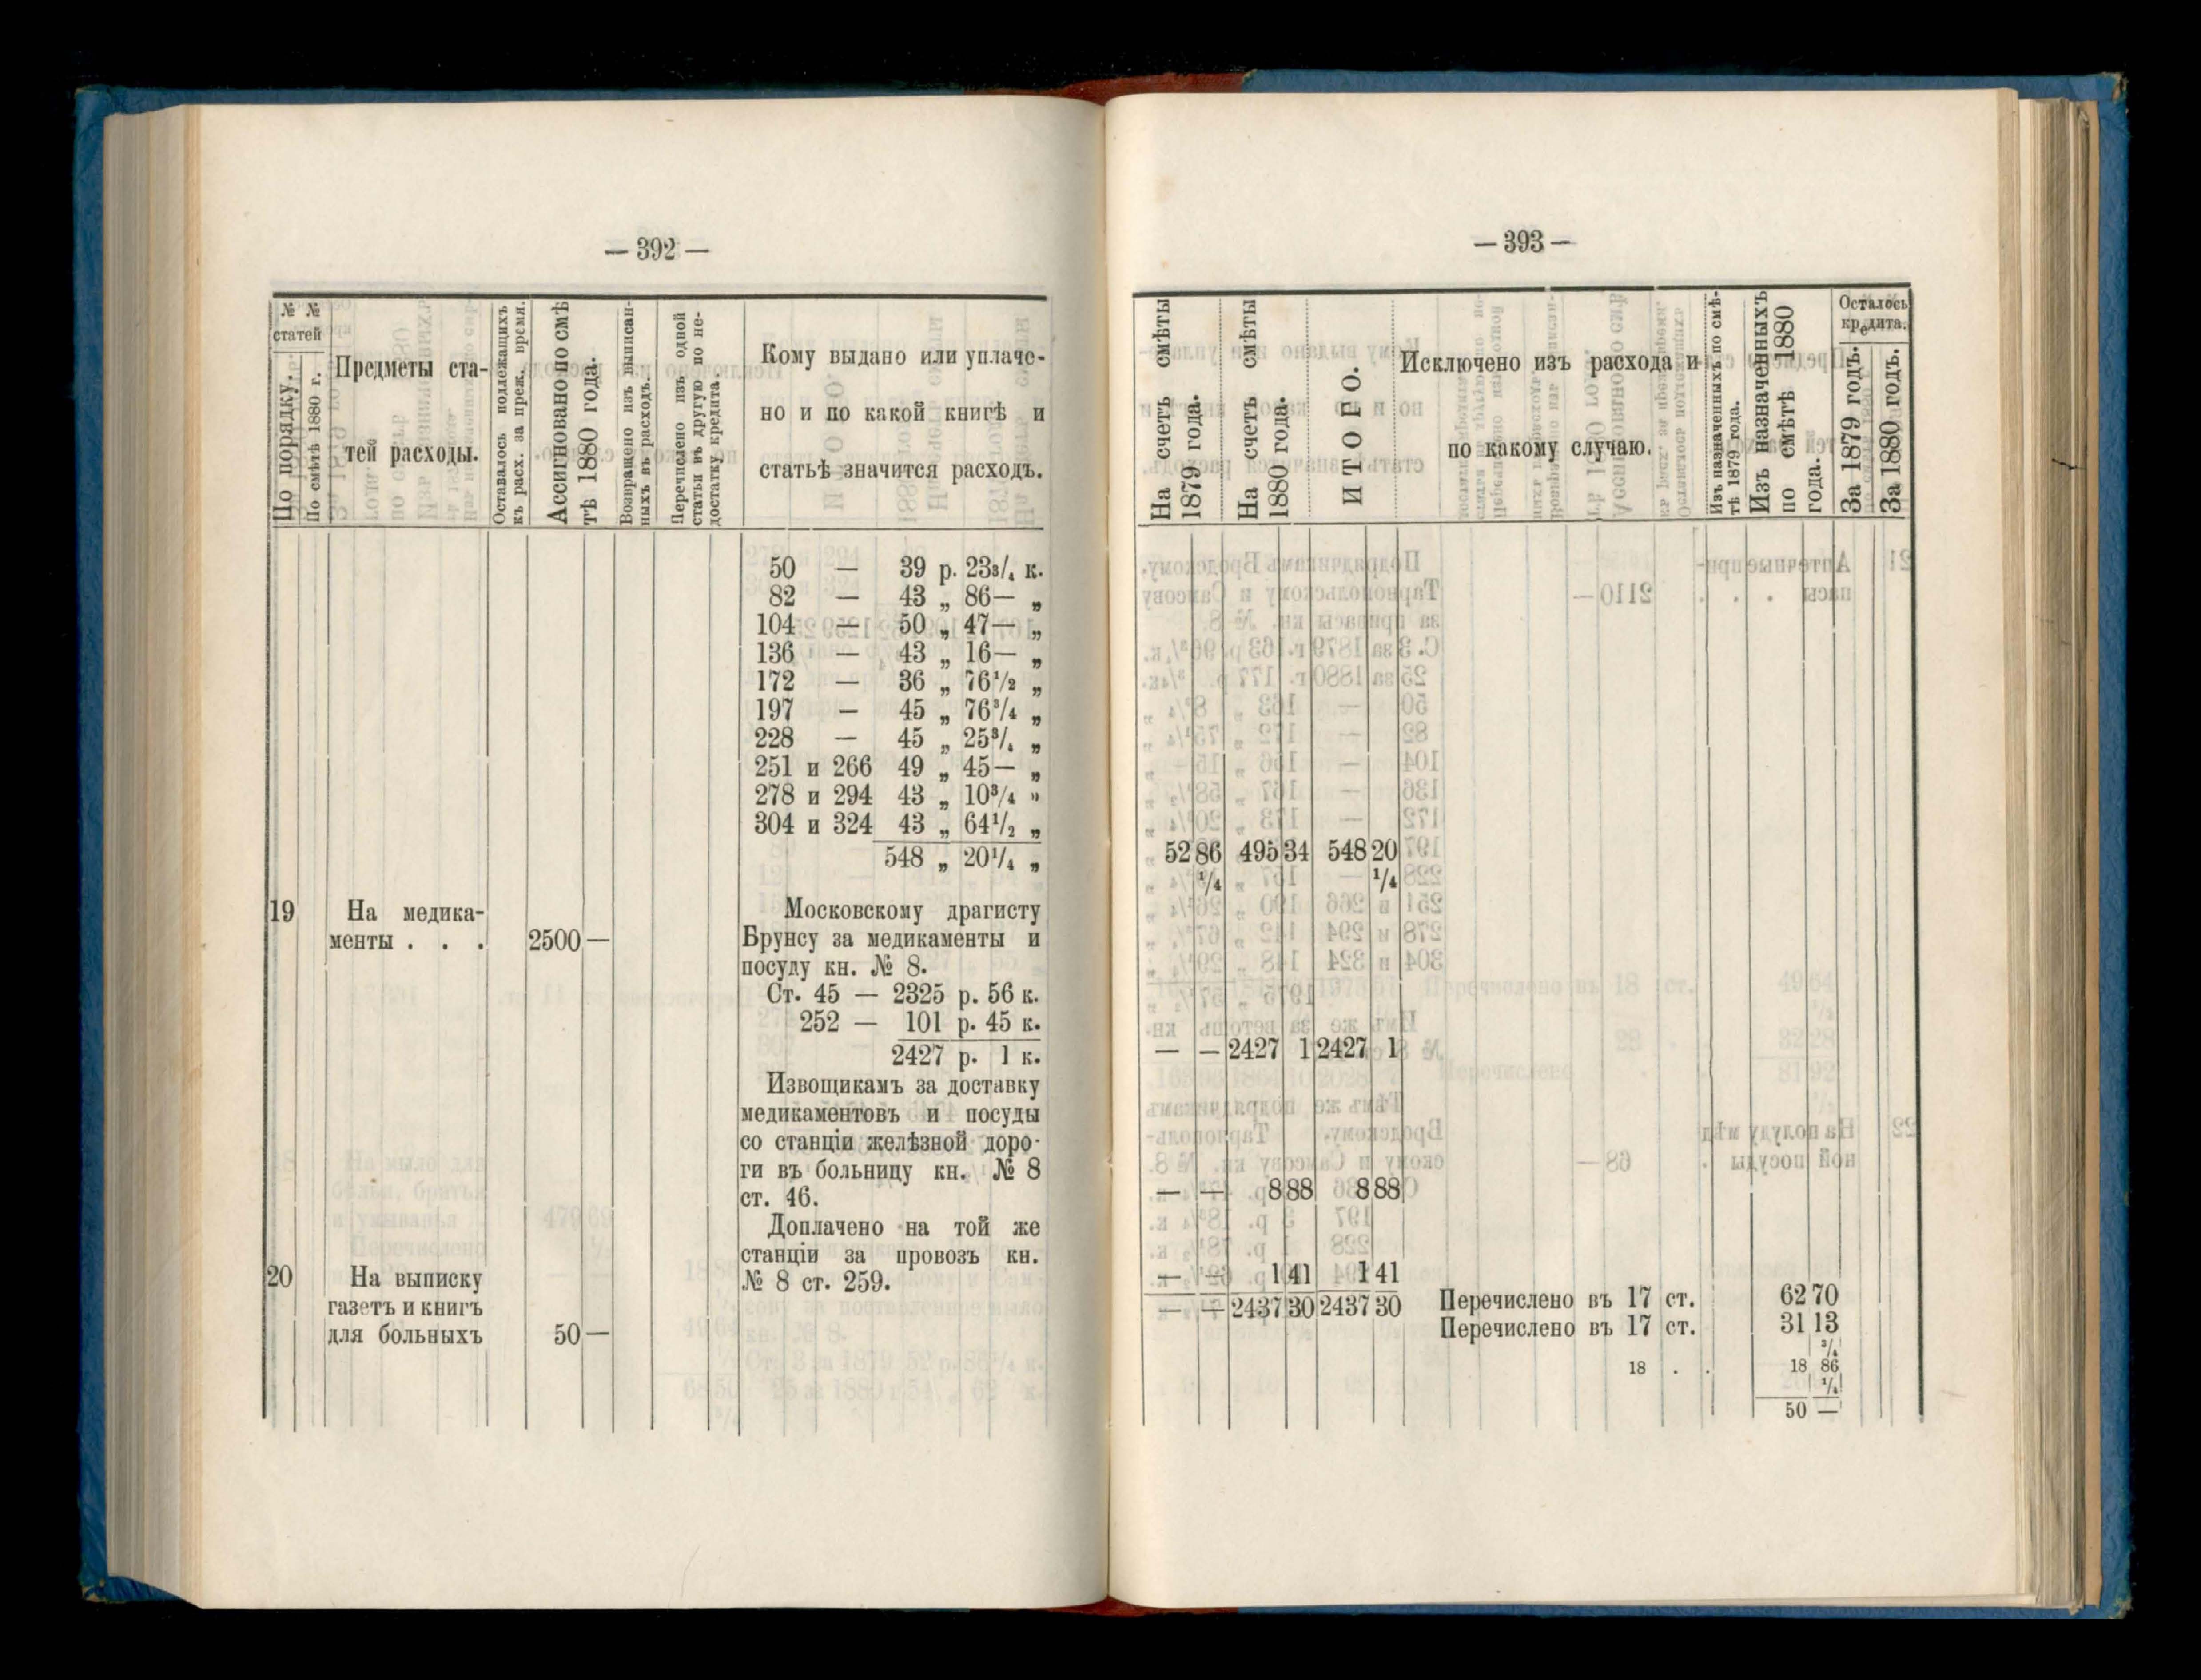 — 392 —
№ №
статей
По порядку.
По смѣтѣ 1880 г.
Предметы ста-
тей расходы.
Оставалось подлежащихъ
къ расх. за преж. время.
Ассигновано по смѣ
тѣ 1880 года.
Возвращено изъ выписан-
ныхъ въ расходъ.
Перечислено изъ одной
статьи въ другую по не-
достатку кредита.
Кому выдано или уплаче-
но и по какой книгѣ и
статьѣ значится расходъ.
50 — 39 р. 23³/₄ к.
82 — 43 „ 86— „
104 — 50 „ 47— „
136 — 43 „ 16— „
172 — 36 „ 76¹/₂ „
197 — 45 „ 76³/₄ „
228 — 45 „ 25³/₄ „
251 и 266 49 „ 45— „
278 и 294 43 „ 10³/₄ „
304 и 324 43 „ 64¹/₂ „
548 „ 20¹/₄ „
19 На медика-
менты . . . 2500 —
Московскому драгисту
Брунсу за медикаменты и
посуду кн. № 8.
Ст. 45 — 2325 р. 56 к.
252 — 101 р. 45 к.
2427 р. 1 к.
Извощикамъ за доставку
медикаментовъ и посуды
со станціи желѣзной доро-
ги въ больницу кн. № 8
ст. 46.
Доплачено на той же
станціи за провозъ кн.
№ 8 ст. 259.
20 На выписку
газетъ и книгъ
для больныхъ 50 —
— 393 —
На счетъ смѣты
1879 года.
На счетъ смѣты
1880 года.
ИТОГО.
Исключено изъ расхода и
по какому случаю.
Изъ назначенныхъ по смѣ-
тѣ 1879 года.
Изъ назначенныхъ
по смѣтѣ 1880
года.
Осталось
кредита.
За 1879 годъ.
За 1880 годъ.
52 86 495 34 548 20
¹/₄ ¹/₄
— — 2427 1 2427 1
— — 8 88 8 88
— — 1 41 1 41
— — 2437 30 2437 30 Перечислено въ 17 ст. 62 70
Перечислено въ 17 ст. 31 13
³/₄
18 . . 18 86
¹/₄
50 —